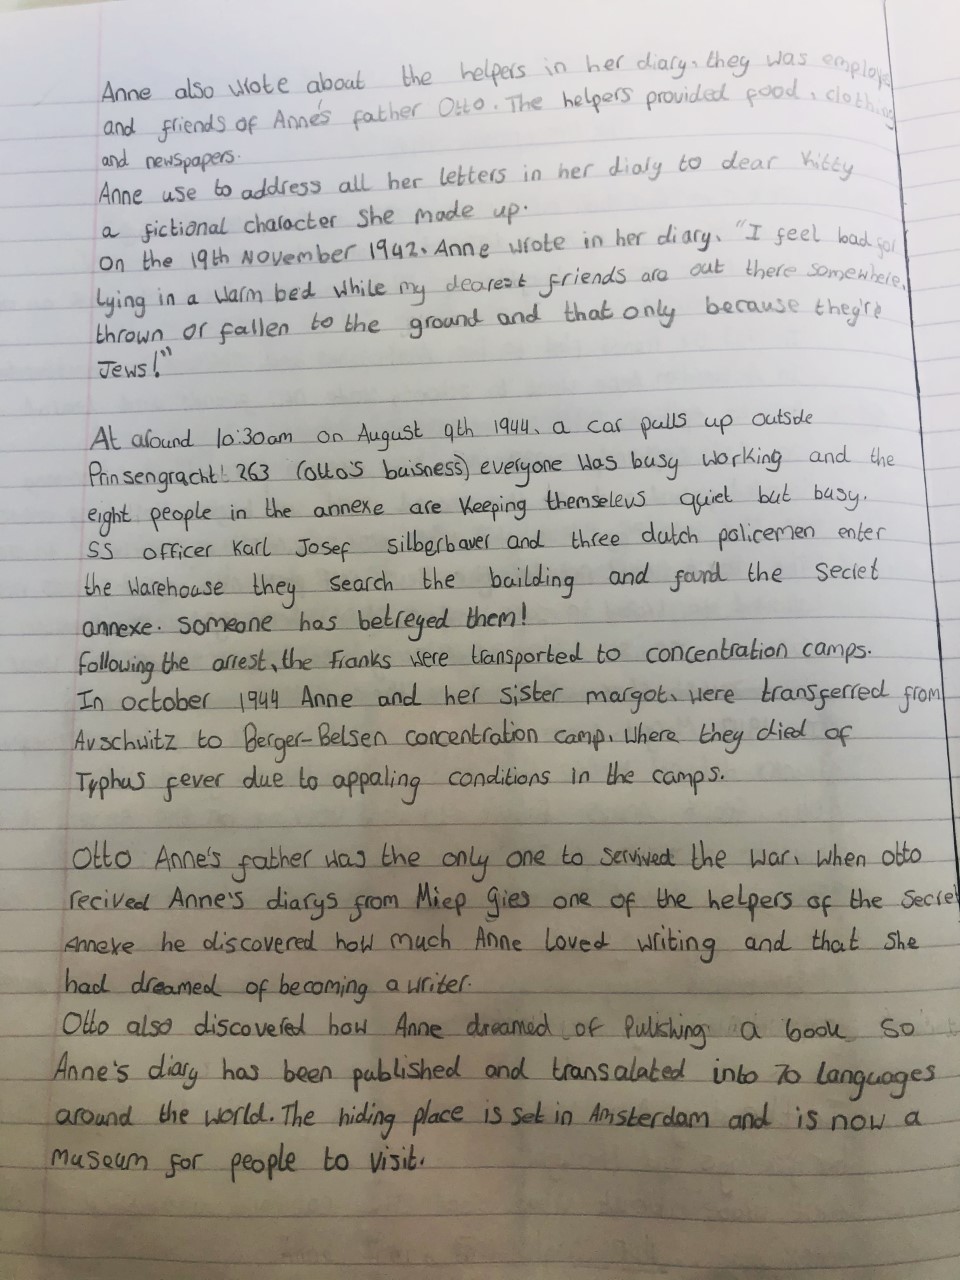 Anne also wrote about the helpers in her diary, they was employe
and friends of Anne's father Otto. The helpers provided food, clothing
and newspapers.
Anne use to address all her letters in her diary to dear Kitty
a fictional character she made up.
On the 19th November 1942. Anne wrote in her diary. "I feel bad for
lying in a warm bed while my dearest friends are out there somewhere,
thrown or fallen to the ground and that only because they're
Jews!"
At around 10:30am on August 9th 1944, a car pulls up outside
Prinsengracht 263 (otto's buisness) everyone was busy working and the
eight people in the annexe are keeping themselevs quiet but busy.
SS officer Karl Josef Silberbauer and three dutch policemen enter
the warehouse they search the building and found the secret
annexe. Someone has betreyed them!
following the arrest, the Franks were transported to concentration camps.
In october 1944 Anne and her sister margot, were transferred from
Auschwitz to Berger-Belsen concentration camp, where they died of
Typhus fever due to appaling conditions in the camps.
Otto Anne's father was the only one to servived the war, when otto
recived Anne's diarys from Miep Gies one of the helpers of the Secret
Annexe he discovered how much Anne loved writing and that she
had dreamed of becoming a writer.
Otto also discovered how Anne dreamed of Pulishing a book so
Anne's diary has been published and transalated into 70 languages
around the world. The hiding place is set in Amsterdam and is now a
museum for people to visit.